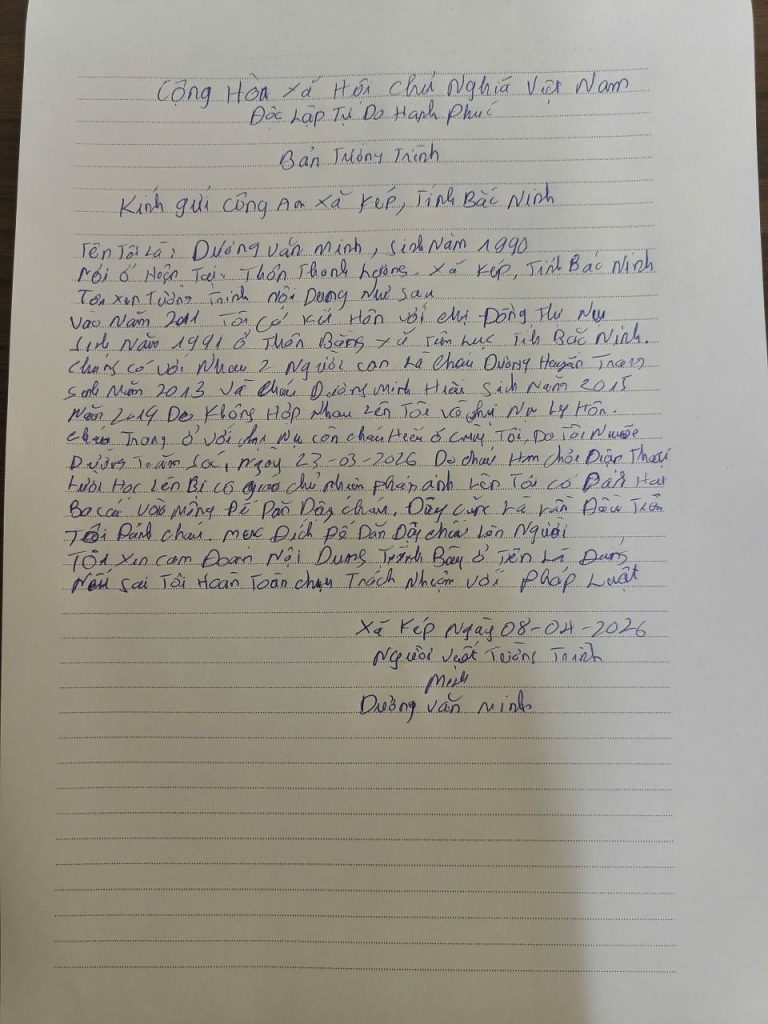 Cộng Hòa Xã Hội Chủ Nghĩa Việt Nam
Độc Lập Tự Do Hạnh Phúc
Bản Tường Trình
Kính gửi Công An Xã Kép, Tỉnh Bắc Ninh
Tên Tôi Là: Dương Văn Minh, Sinh Năm 1990
Nơi ở Hiện Tại: Thôn Thanh Lương. Xã Kép, Tỉnh Bắc Ninh
Tôi Xin Tường Trình Nội Dung Như Sau
Vào Năm 2011 Tôi Có Kết Hôn Với chị Đồng Thị Nụ
Sinh Năm 1991 ở Thôn Bằng Xã Tiên Lục Tỉnh Bắc Ninh.
Chúng có với Nhau 2 Người con Là Cháu Dương Huyền Trang
Sinh Năm 2013 Và Cháu Dương Minh Hiếu Sinh Năm 2015
Năm 2019 Do Không Hợp Nhau Lên Tôi Và chị Nụ Ly Hôn.
Cháu Trang ở Với chị Nụ còn cháu Hiếu ở Cùng Tôi, Do Tôi Nuôi
Dưỡng Trăm Sóc, Ngày 23-03-2026 Do cháu Ham Chơi Điện Thoại
Lười Học Lên Bị cô giáo chủ nhiệm phản ánh Lên Tôi có Đánh Hai
Ba cái Vào Mông Để Dăn Dậy cháu. Đây cũng Là Lần Đầu Tiên
Tôi Đánh cháu. Mục Đích Để Dăn Dậy cháu Lên Người
Tôi Xin cam Đoan Nội Dung Trình Bầy ở Trên Là Đúng
Nếu Sai Tôi Hoàn Toàn chịu Trách Nhiệm Với Pháp Luật
Xã Kép Ngày 08-04-2026
Người Viết Tường Trình
Minh
Dương Văn Minh